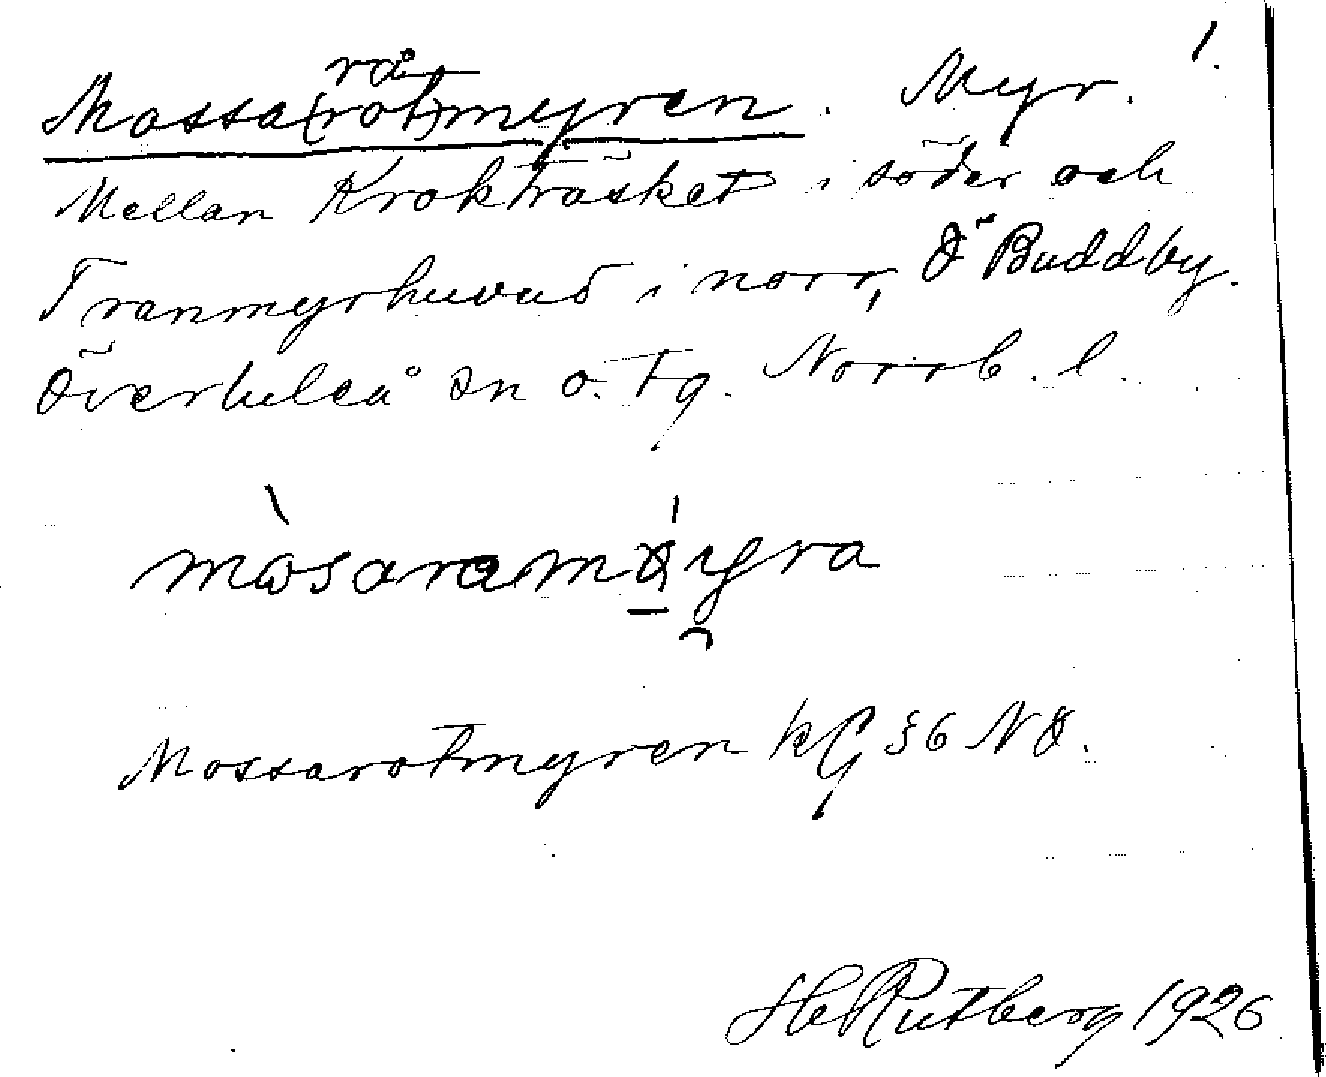 1.
rå
Mossa(rot)myren. Myr.
Mellan Krokträsket i söder och
Tranmyrhuvud i norr, Ö Buddby.
Överluleå sn o. tg. Norrb. l.
Mossarotmyren kG §6 NÖ.
H Rutberg 1926